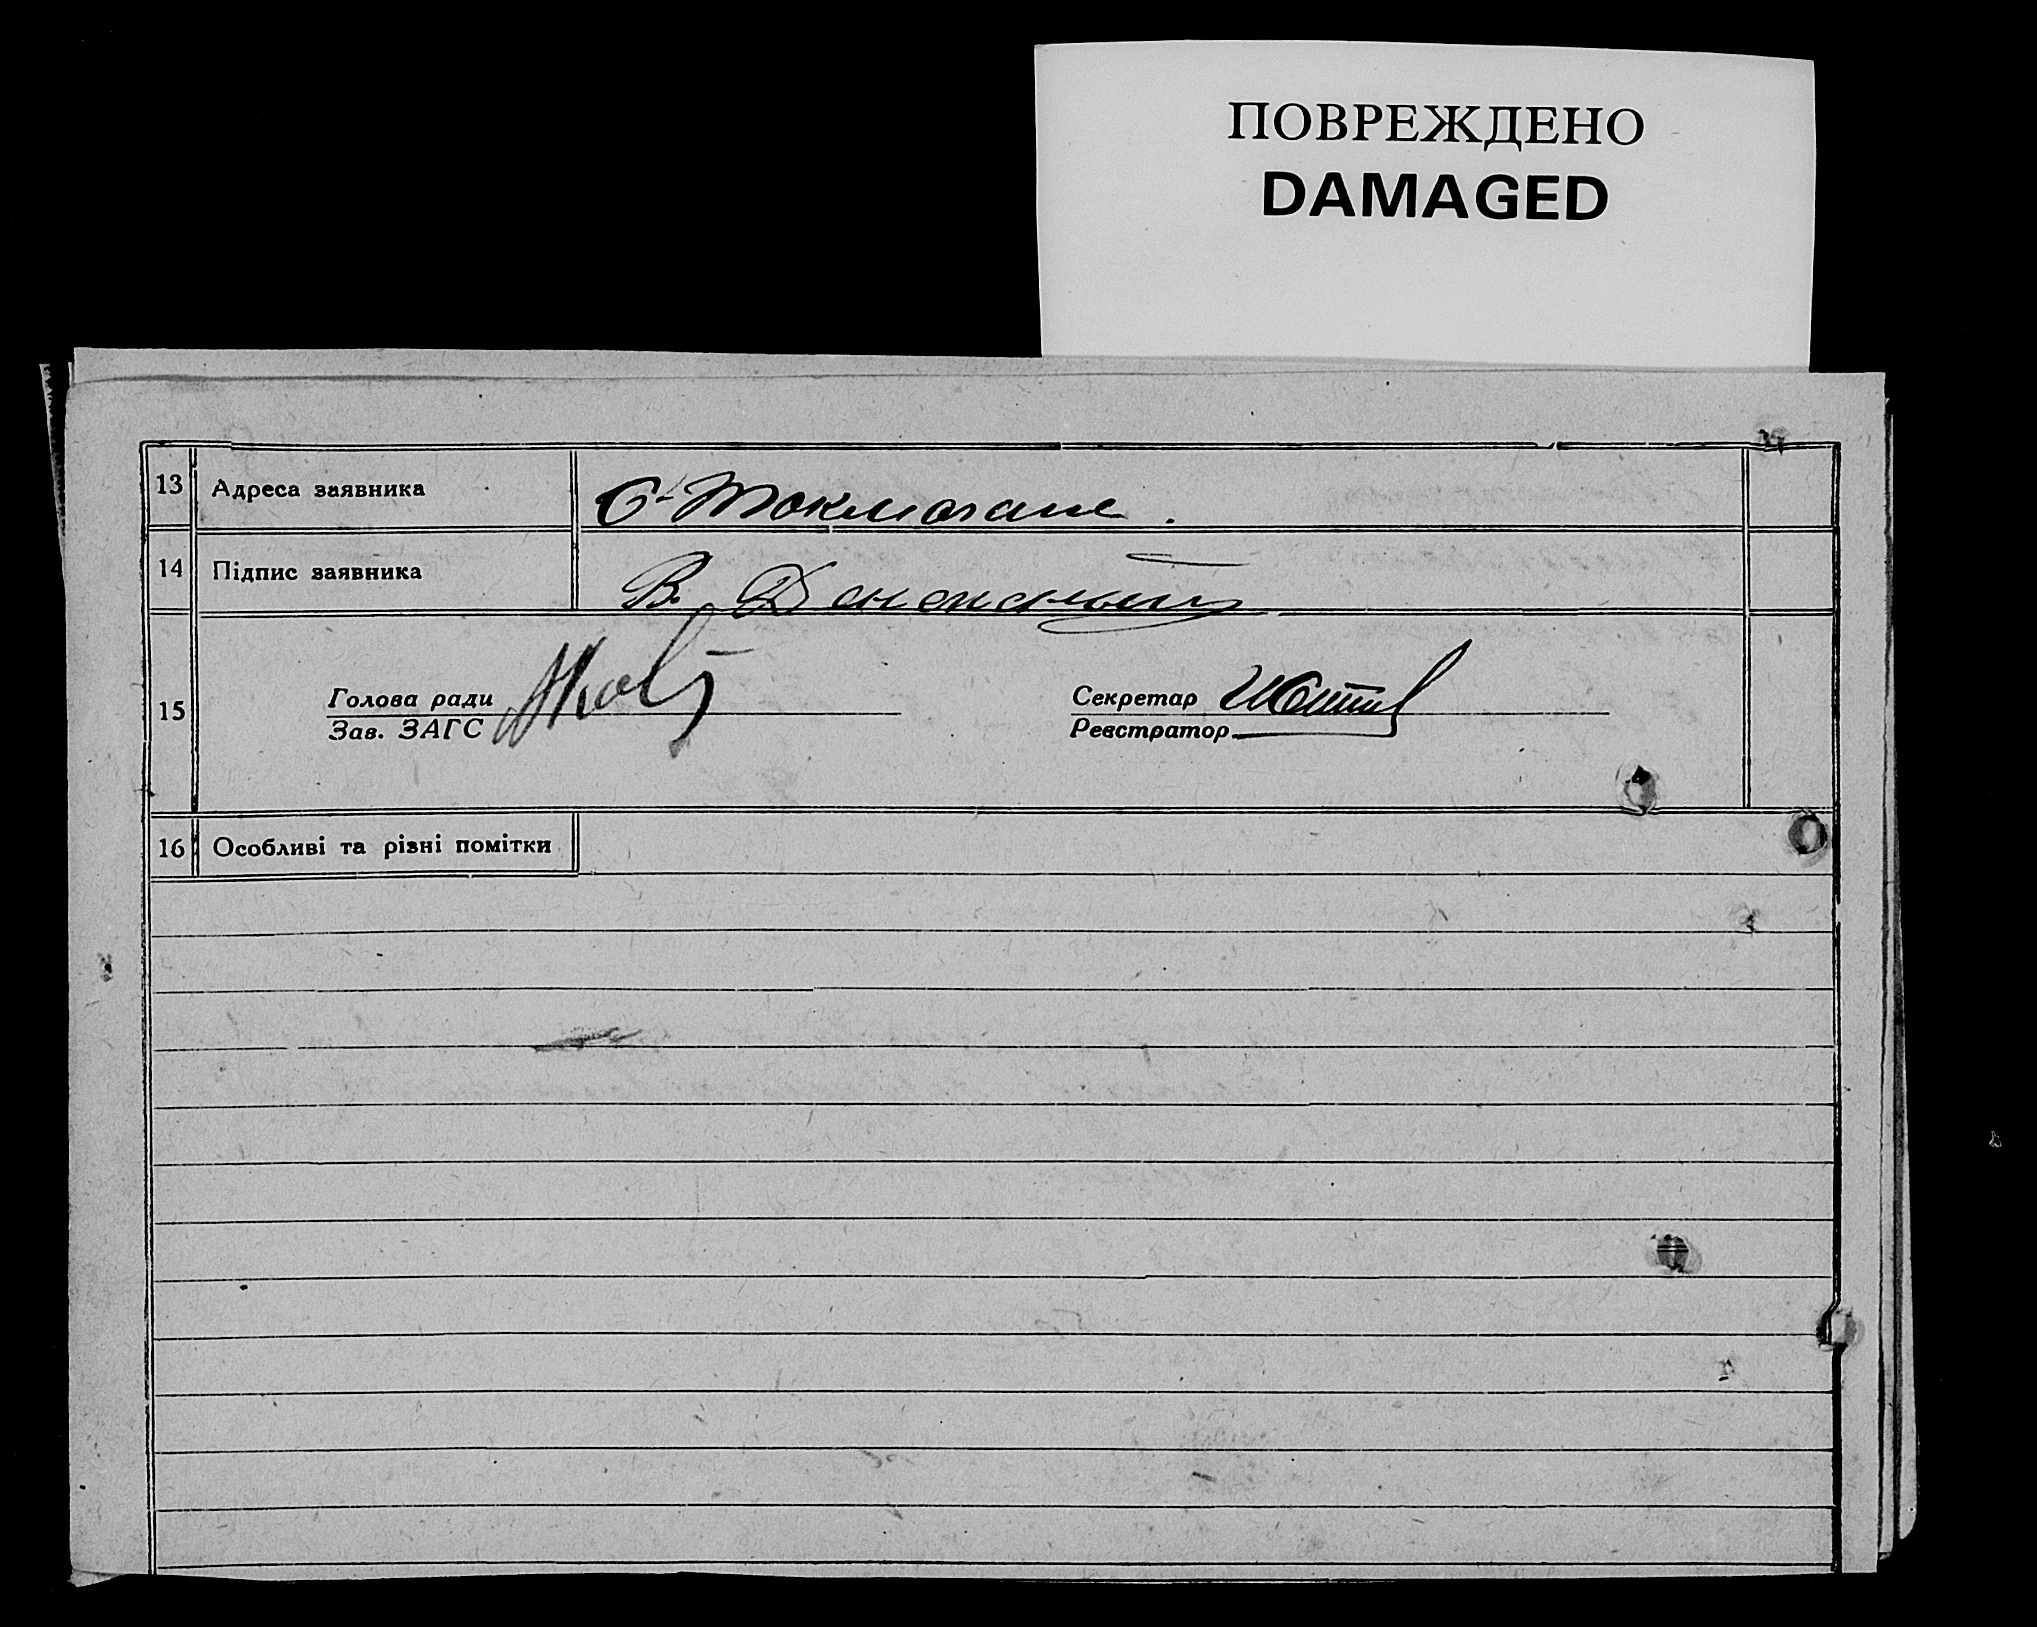 ПОВРЕЖДЕНО
DAMAGED
13 Адреса заявника
14 Підпис заявника В.
15 Голова ради Секретар
Зав. ЗАГС Реєстратор
16 Особливі та різні помітки